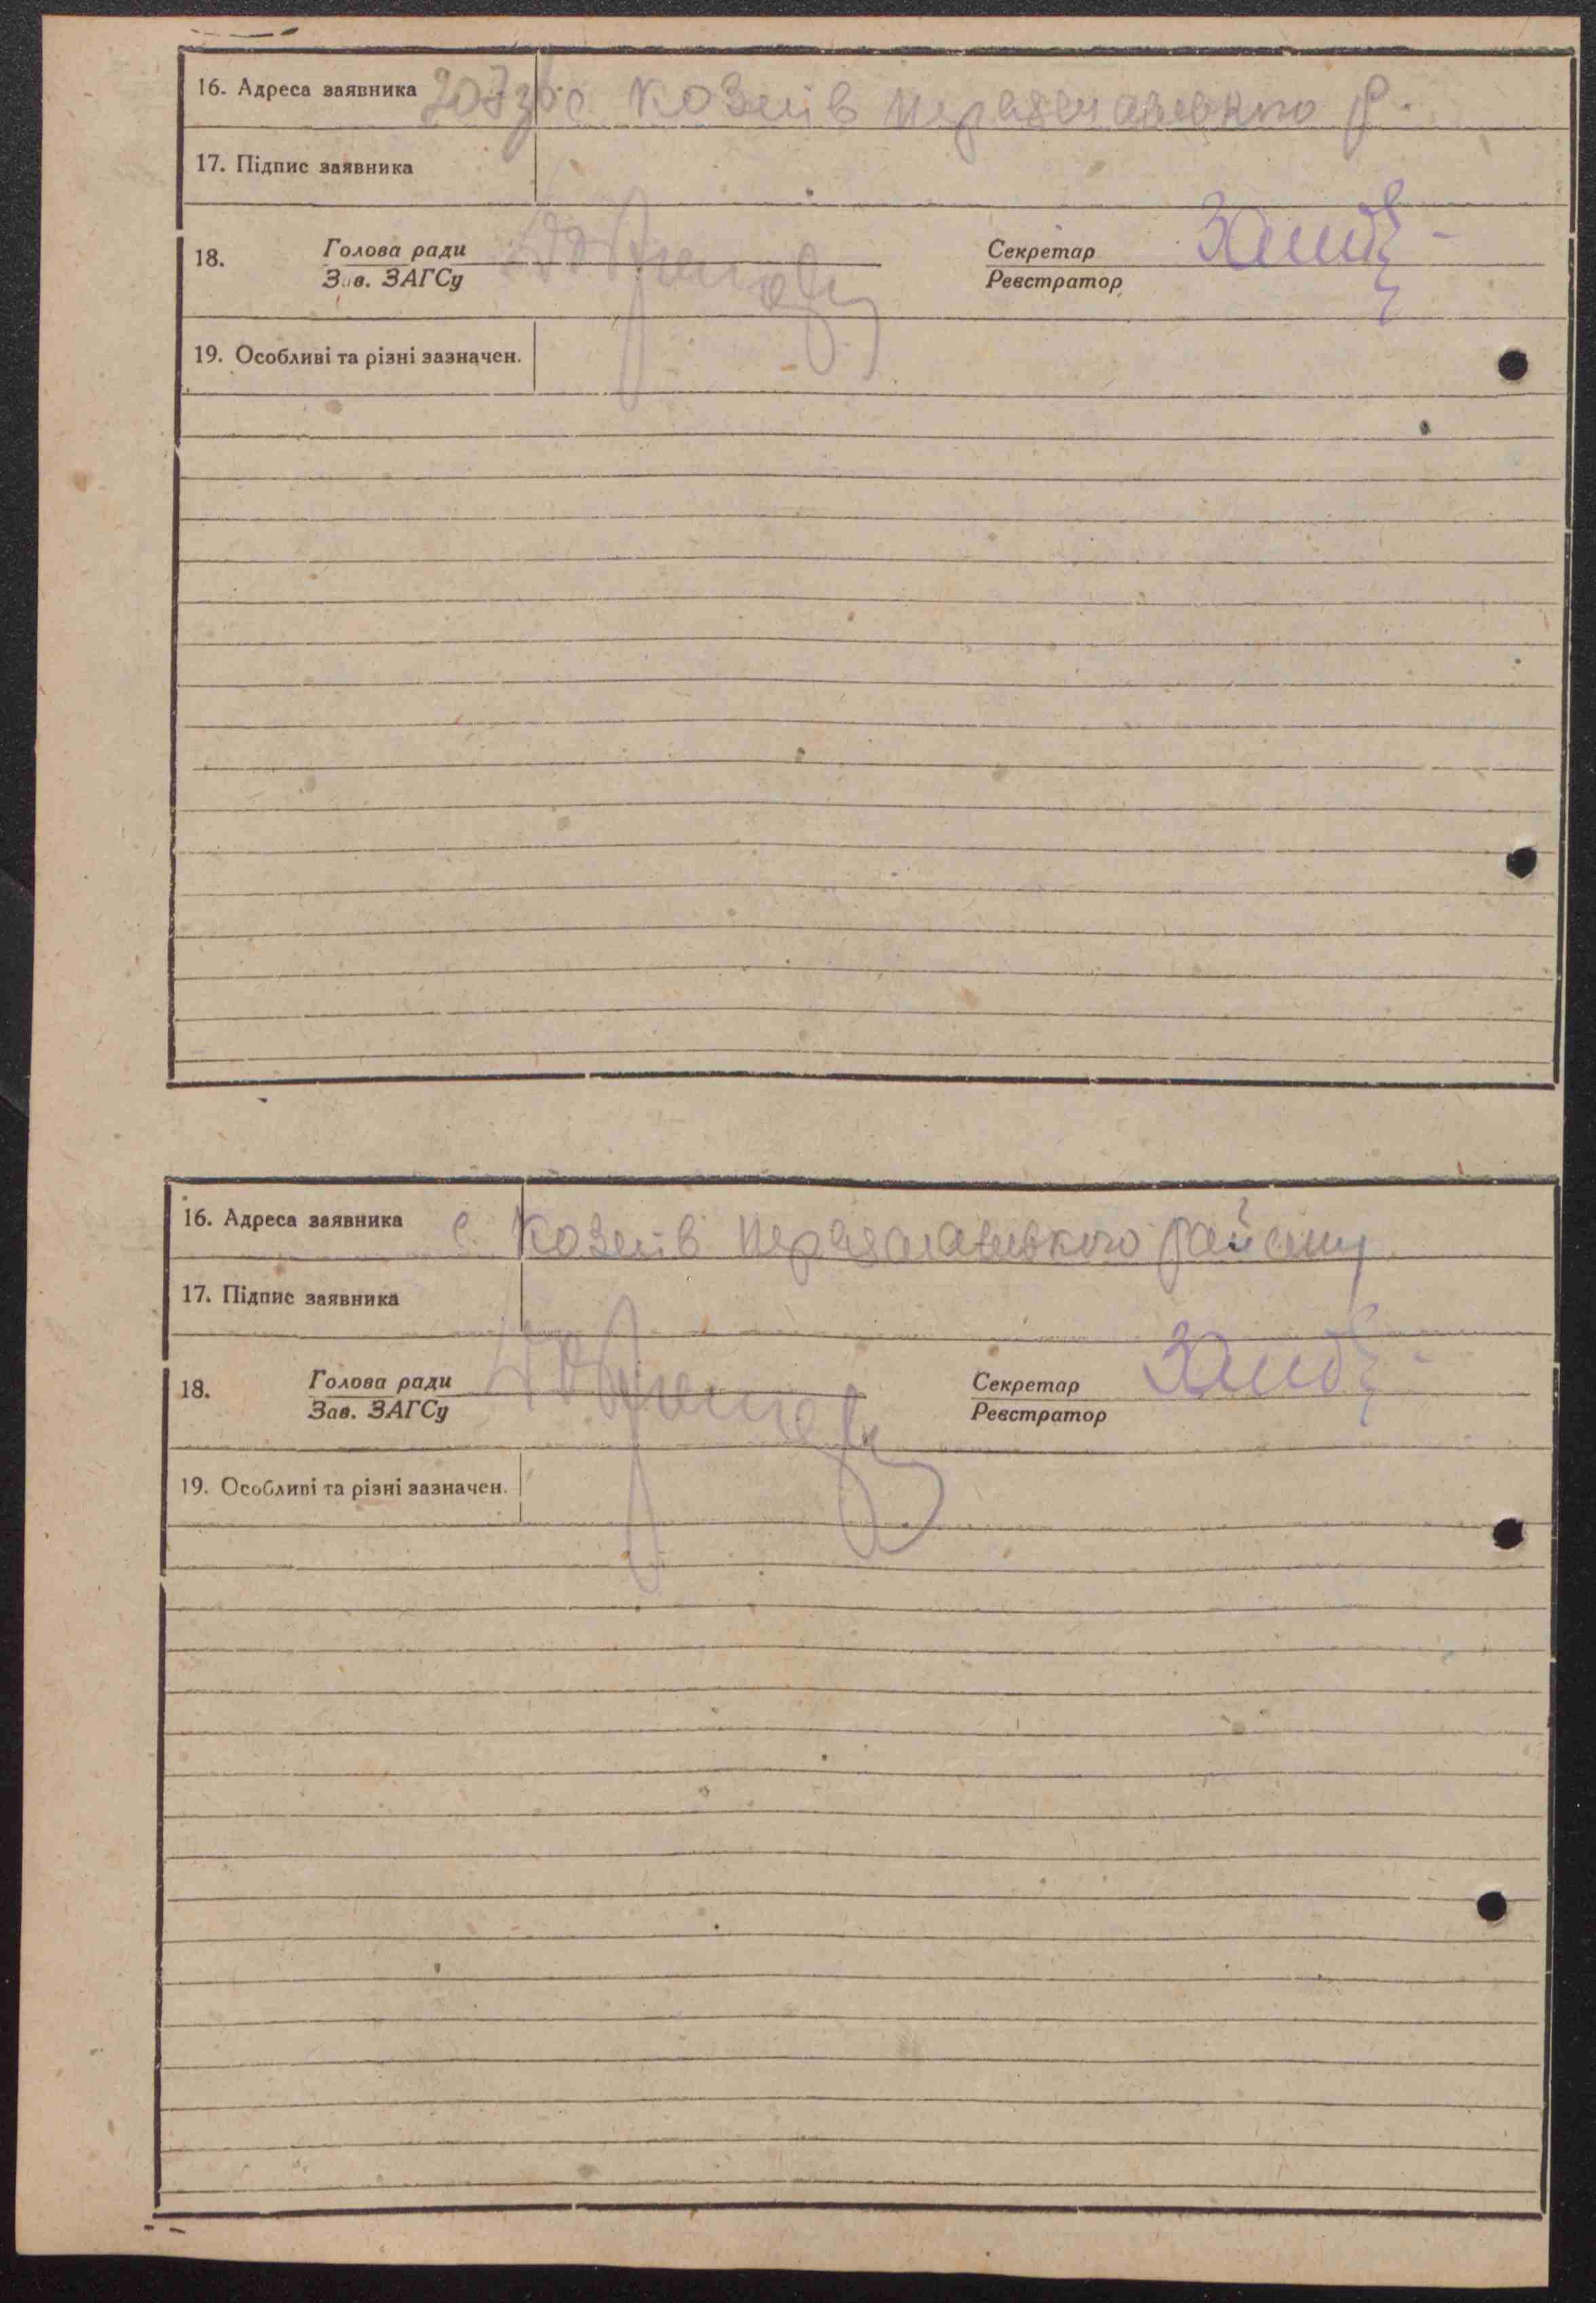 16. Адреса заявника с. Козлів
17. Підпис заявника
18. Голова ради Секретар
Зав. ЗАГСу Реєстратор
19. Особливі та різні зазначен.
16. Адреса заявника с. Козлів району
17. Підпис заявника
18. Голова ради Секретар
Зав. ЗАГСу Реєстратор
19. Особливі та різні зазначен.